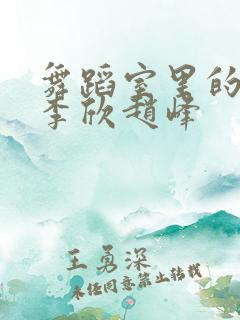 舞蹈室里的
李欣赵峰
王勇深
未经同意禁止转载